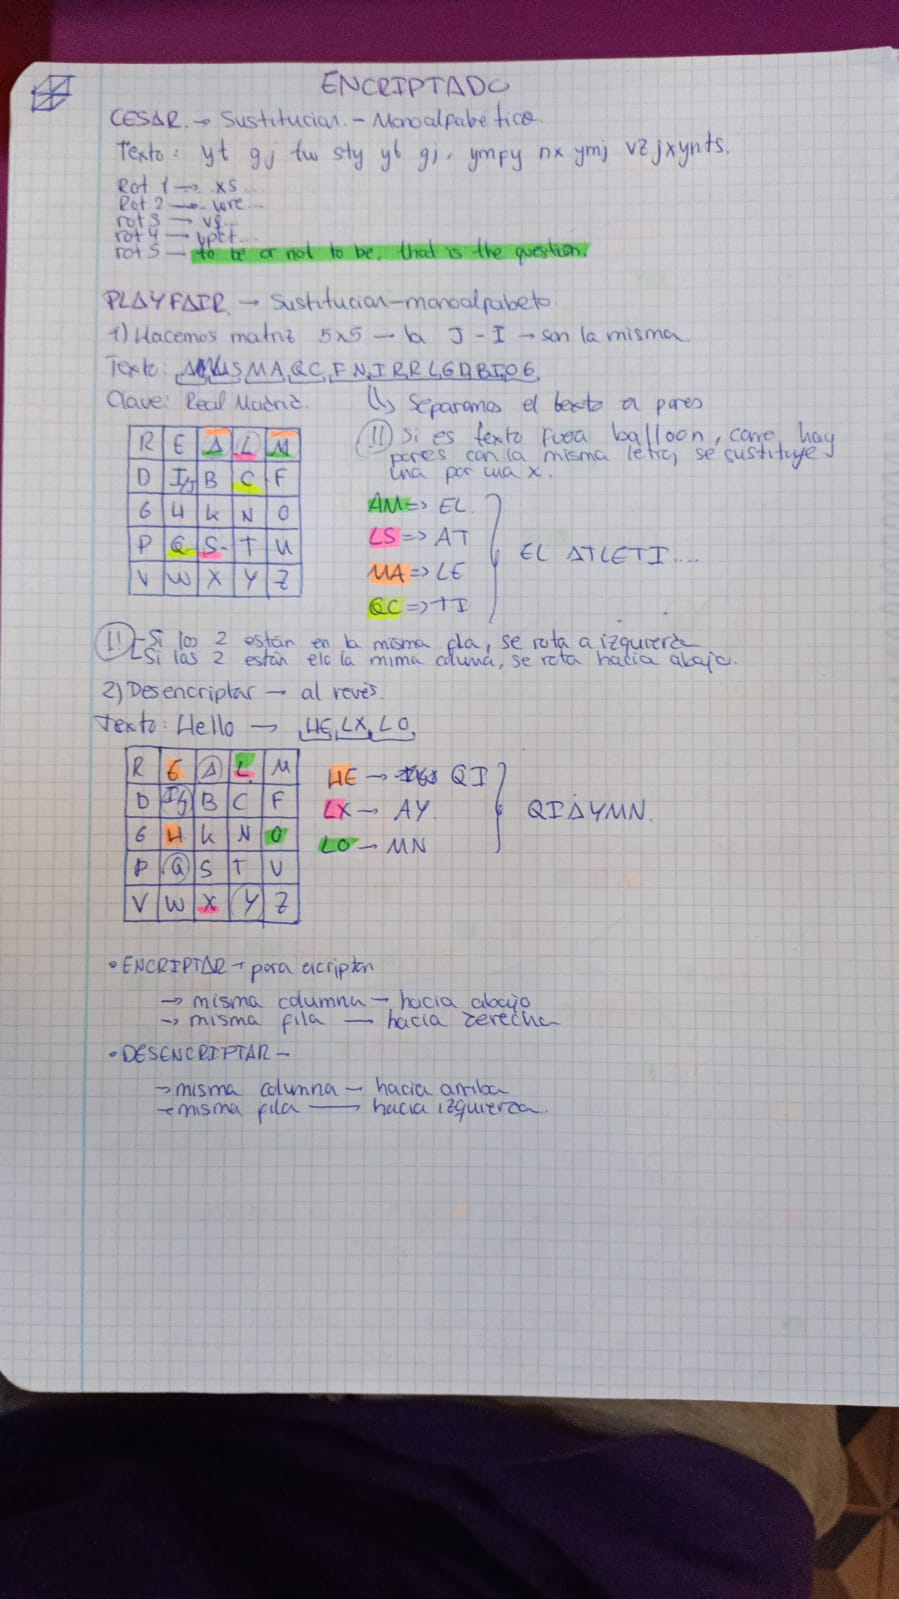 ENCRIPTADO
CESAR. → Sustitucion. - Monoalfabetico.
Texto: yt gj tw sty yt gj, ymfy nx ymj vzjxynts.
Rot 1 → xs ...
Rot 2 → wre...
rot 3 → vq...
rot 4 → upct...
rot 5 — to be or not to be, that is the question.
PLAYFAIR → Sustitucion-monoalfabeto
1) Hacemos matriz 5x5 — la J - I → son la misma
Texto: SMA,QC,FN,IRRLGDBIOG
Clave: Real Madrid.
↳ Separamos el texto a pares
R E A L M
D I/J B C F
G H K N O
P Q S T U
V W X Y Z
(!!) Si es texto fuera balloon, como hay
pares con la misma letra, se sustituye
una por una x.
AM => EL
LS => AT
MA => LE
QC => TI
EL ATLETI....
(!!) - Si los 2 están en la misma fila, se rota a izquierda
- Si las 2 están en la mima coluna, se rota hacia abajo.
2) Desencriptar → al revés.
Texto: Hello → HE, LX, LO
R E A L M
D I/J B C F
G H K N O
P Q S T U
V W X Y Z
HE → QI
LX → AY
LO → MN
QIAYMN.
• ENCRIPTAR → para encriptar
→ misma columna → hacia abajo
→ misma fila → hacia derecha
• DESENCRIPTAR -
→ misma columna — hacia arriba
→ misma fila → hacia izquierda.